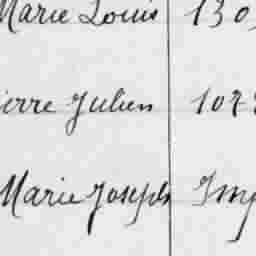 Marie Louis 130
ierre Julien 107
Marie Joseph Imp